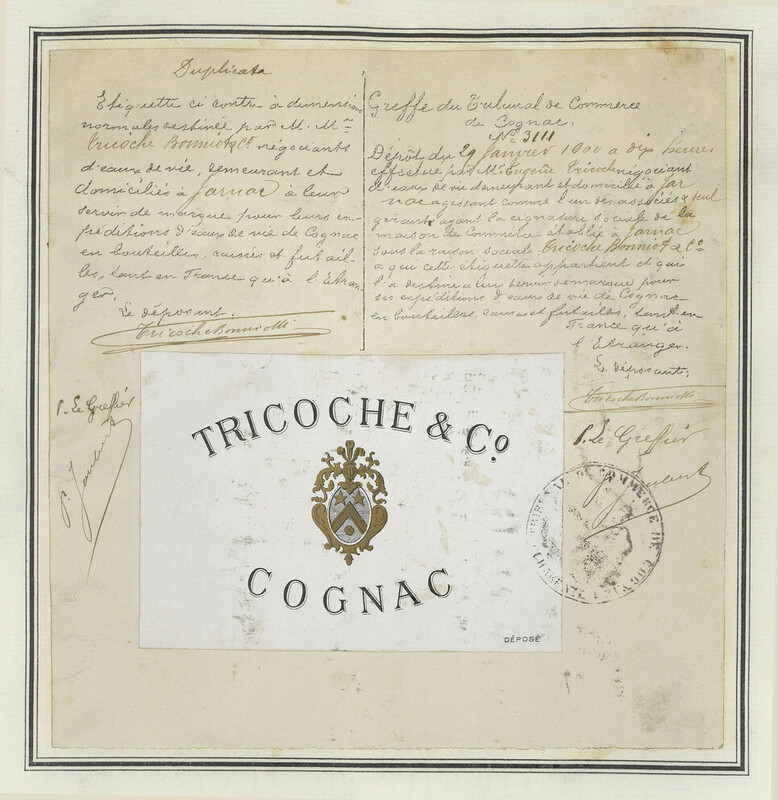 Duplicata
Etiquette ci contre à dimensions
normales destinée par M. Mrs
Tricoche Bonniot & Co négociants
d'eaux de vie, demeurant et
domiciliés à Jarnac à leur
servir de marque pour leurs ex-
péditions d'eaux de vie de Cognac
en bouteilles, caisses et futail-
les, tant en France qu'à l'Etran
ger.
Le déposant.
Tricoche Bonniot & Co
Greffe du Tribunal de Commerce
de Cognac.
No 3111
Dépôt du 29 Janvier 1900 à dix heures
effectué par Mr Eugène Tricoche négociant
d'eaux de vie demeurant et domicilié à Jar
nac agissant comme l'un des associés & seul
gérant ayant la signature sociale de la
maison de Commerce établie à Jarnac
sous la raison sociale Tricoche Bonniot & Co
a qui cette étiquette appartient et qui
l'a destinée à lui servir de marque pour
ses expéditions d'eaux de vie de Cognac
en bouteilles, caisses et futailles, tant en
France qu'à
l'Etranger.
Le déposant;
Tricoche Bonniot & Co
P. Le Greffier
P. Le Greffier
Joubert
TRICOCHE & Co
COGNAC
DÉPOSÉ
TRIBUNAL DE COMMERCE DE COGNAC